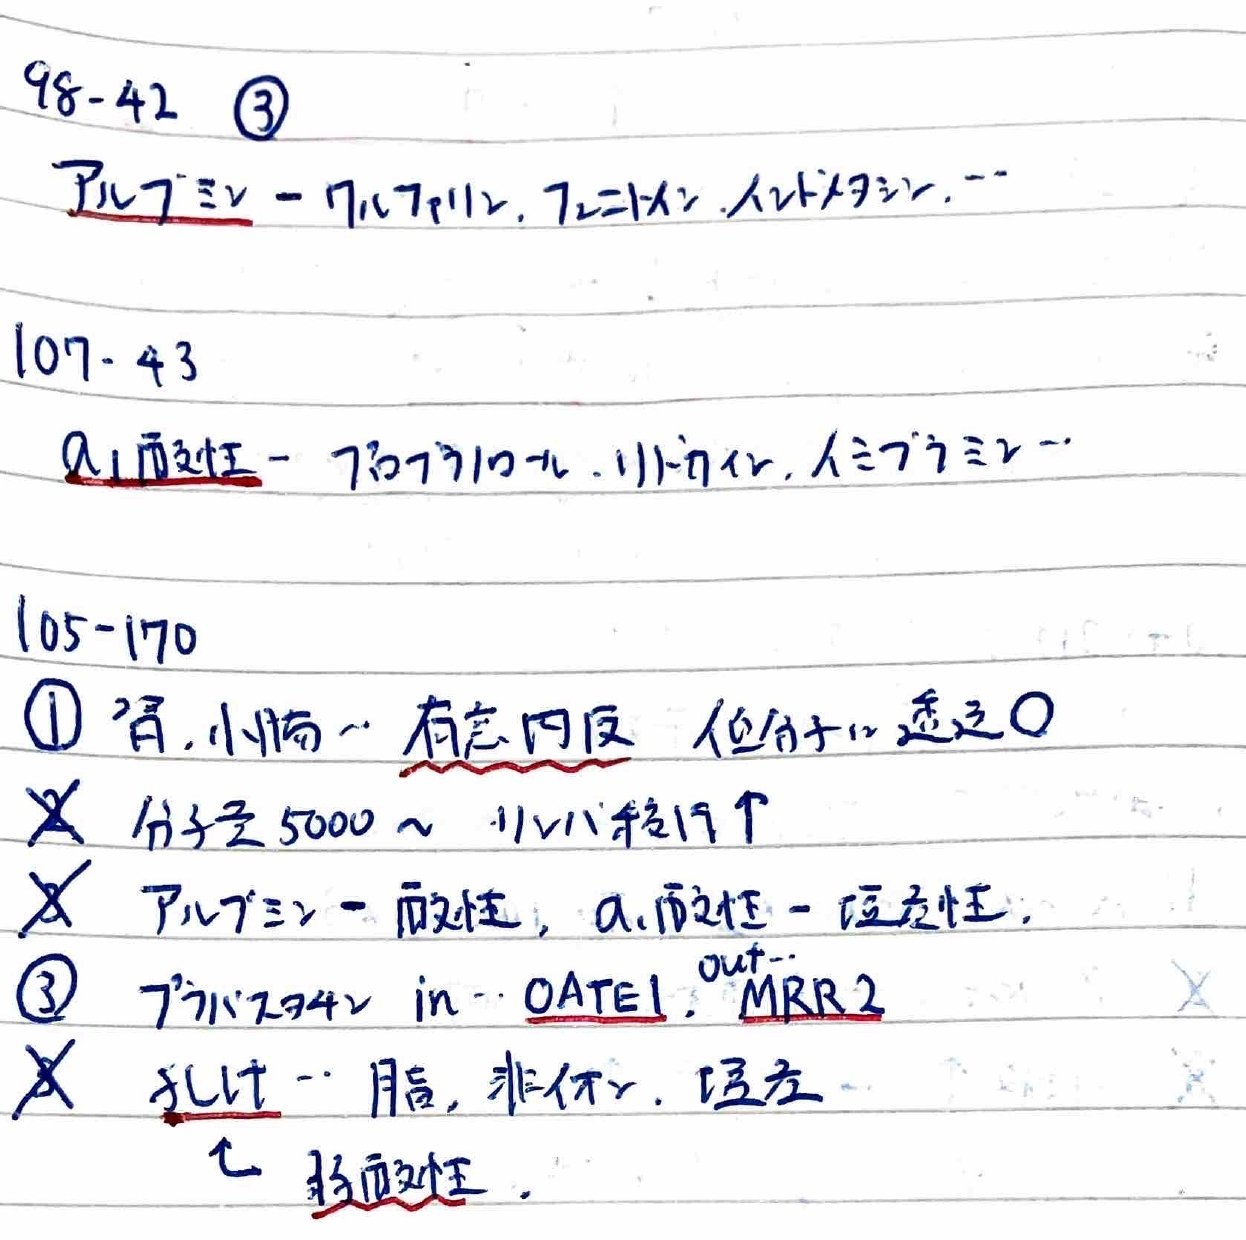 98-42 ③
アルブミン - ワルファリン, フェニトイン, インドメタシン, …
107-43
α1酸性 - プロプラノロール, リドカイン, イミプラミン…
105-170
① 腎, 小腸… 有窓内皮 低分子は透過○
2 分子量5000~ リンパ移行↑
アルブミン - 酸性, α1酸性 - 塩基性.
③ プラバスタチン in… OATE1, out… MRR2
乳汁… 脂, 非イオン, 塩基
↑ 弱酸性.